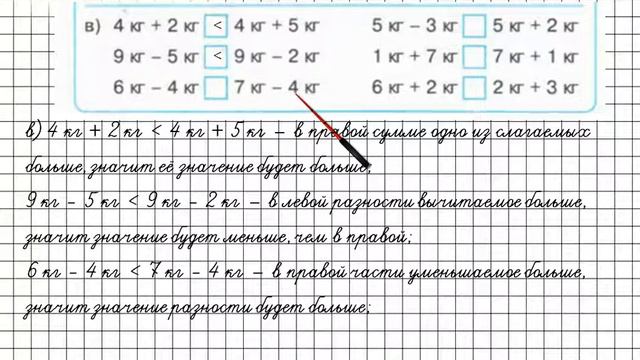 в) 4 кг + 2 кг < 4 кг + 5 кг 5 кг – 3 кг □ 5 кг + 2 кг
9 кг – 5 кг < 9 кг – 2 кг 1 кг + 7 кг □ 7 кг + 1 кг
6 кг – 4 кг □ 7 кг – 4 кг 6 кг + 2 кг □ 2 кг + 3 кг
в) 4 кг + 2 кг < 4 кг + 5 кг – в правой сумме одно из слагаемых
больше, значит её значение будет больше;
9 кг – 5 кг < 9 кг – 2 кг – в левой разности вычитаемое больше,
значит значение будет меньше, чем в правой;
6 кг – 4 кг < 7 кг – 4 кг – в правой части уменьшаемое больше,
значит значение разности будет больше;